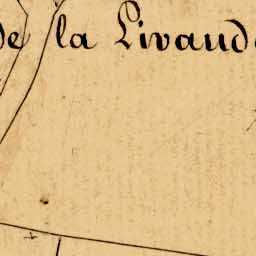 de la Livaude